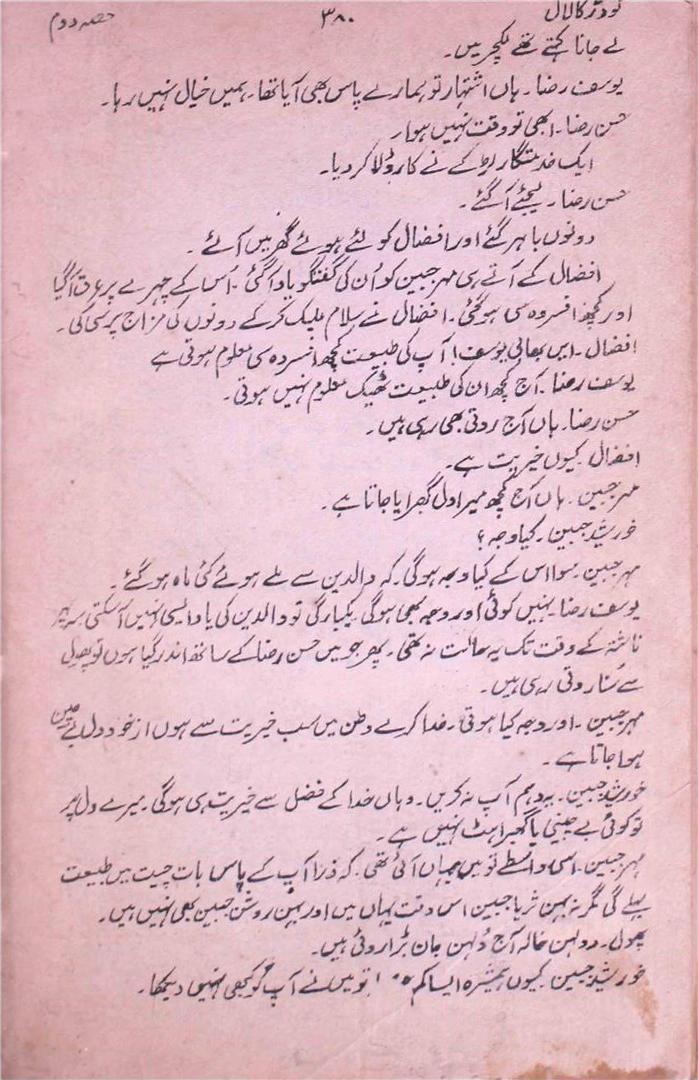 گودڑ کا لال ۳۸۰ حصہ دوم
لے جانا کہتے تھے لکچر میں۔
یوسف رضا۔ ہاں اشتہار تو ہمارے پاس بھی آیا تھا۔ ہمیں خیال نہیں رہا۔
حسن رضا۔ ابھی تو وقت نہیں ہوا۔
ایک خدمتگار لڑکے نے کارڈ لا کر دیا۔
حسن رضا۔ لیجئے آ گئے۔
دونوں باہر گئے اور افضال کو لئے ہوئے گھر میں آئے۔
افضال کے آتے ہی مہر جبین کو اُن کی گفتگو یاد آ گئی۔ اُس کے چہرے پر عرق آ گیا
اور کچھ افسردہ سی ہو گئی۔ افضال نے سلام علیک کر کے دونوں کی مزاج پرسی کی۔
افضال۔ ایں بھائی یوسف! آپ کی طبیعت کچھ افسردہ سی معلوم ہوتی ہے
یوسف رضا۔ آج کچھ ان کی طبیعت ٹھیک معلوم نہیں ہوتی۔
حسن رضا۔ ہاں آج روتی بھی رہی ہیں۔
افضال کیوں خیریت ہے۔
مہر جبین۔ ہاں آج کچھ میرا دل گھبرایا جاتا ہے۔
خورشید جبین۔ کیا وجہ؟
مہر جبین۔ سوا اس کے کیا وجہ ہو گی۔ کہ والدین سے ملے ہوئے کئی ماہ ہو گئے۔
یوسف رضا۔ نہیں کوئی اور وجہ بھی ہو گی۔ یکبارگی تو والدین کی یاد ایسی نہیں آ سکتی سہ پہر
ناشتہ کے وقت تک یہ حالت نہ تھی۔ پھر جو میں حسن رضا کے ساتھ اندر گیا ہوں تو پھول
سے سُنا روتی رہی ہیں۔
مہر جبین۔ اور وجہ کیا ہوتی۔ خدا کرے وطن میں سب خیریت سے ہوں از خود دل بے چین
ہوا جاتا ہے۔
خورشید جبین۔ یہ وہم آپ نہ کریں۔ وہاں خدا کے فضل سے خیریت ہی ہو گی۔ میرے دل پر
تو کوئی بے چینی یا گھبراہٹ نہیں ہے۔
مہر جبین۔ اسی واسطے تو میں یہاں آئی تھی۔ کہ ذرا آپ کے پاس بات چیت میں طبیعت
بہلے گی مگر نہ بہن ثریا جبین اس وقت یہاں ہیں اور بہن روشن جبین بھی نہیں ہیں۔
پھول۔ دولہن خالہ آج دُلہن جان بڑا روئی ہیں۔
خورشید جبین۔ کیوں ہمشیرہ ایسا کم تو میں نے آپ کو کبھی نہیں دیکھا۔